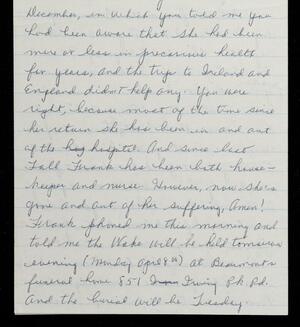 December, in which you told me you
had been aware that she had been
more or less in precarious health
for years, and the trip to Ireland and
England didn't help any. You were
right, because most of the time since
her return she has been in and out
of the hos hospital. And since last
Fall Frank has been both house-
keeper and nurse. However, now she's
gone and out of her suffering, Amen!
Frank phoned me this morning and
told me the Wake will be held tomorrow
evening (Monday April 8th) at Beaumont's
funeral home 851 Irving Pk Rd.
And the burial will be Tuesday.